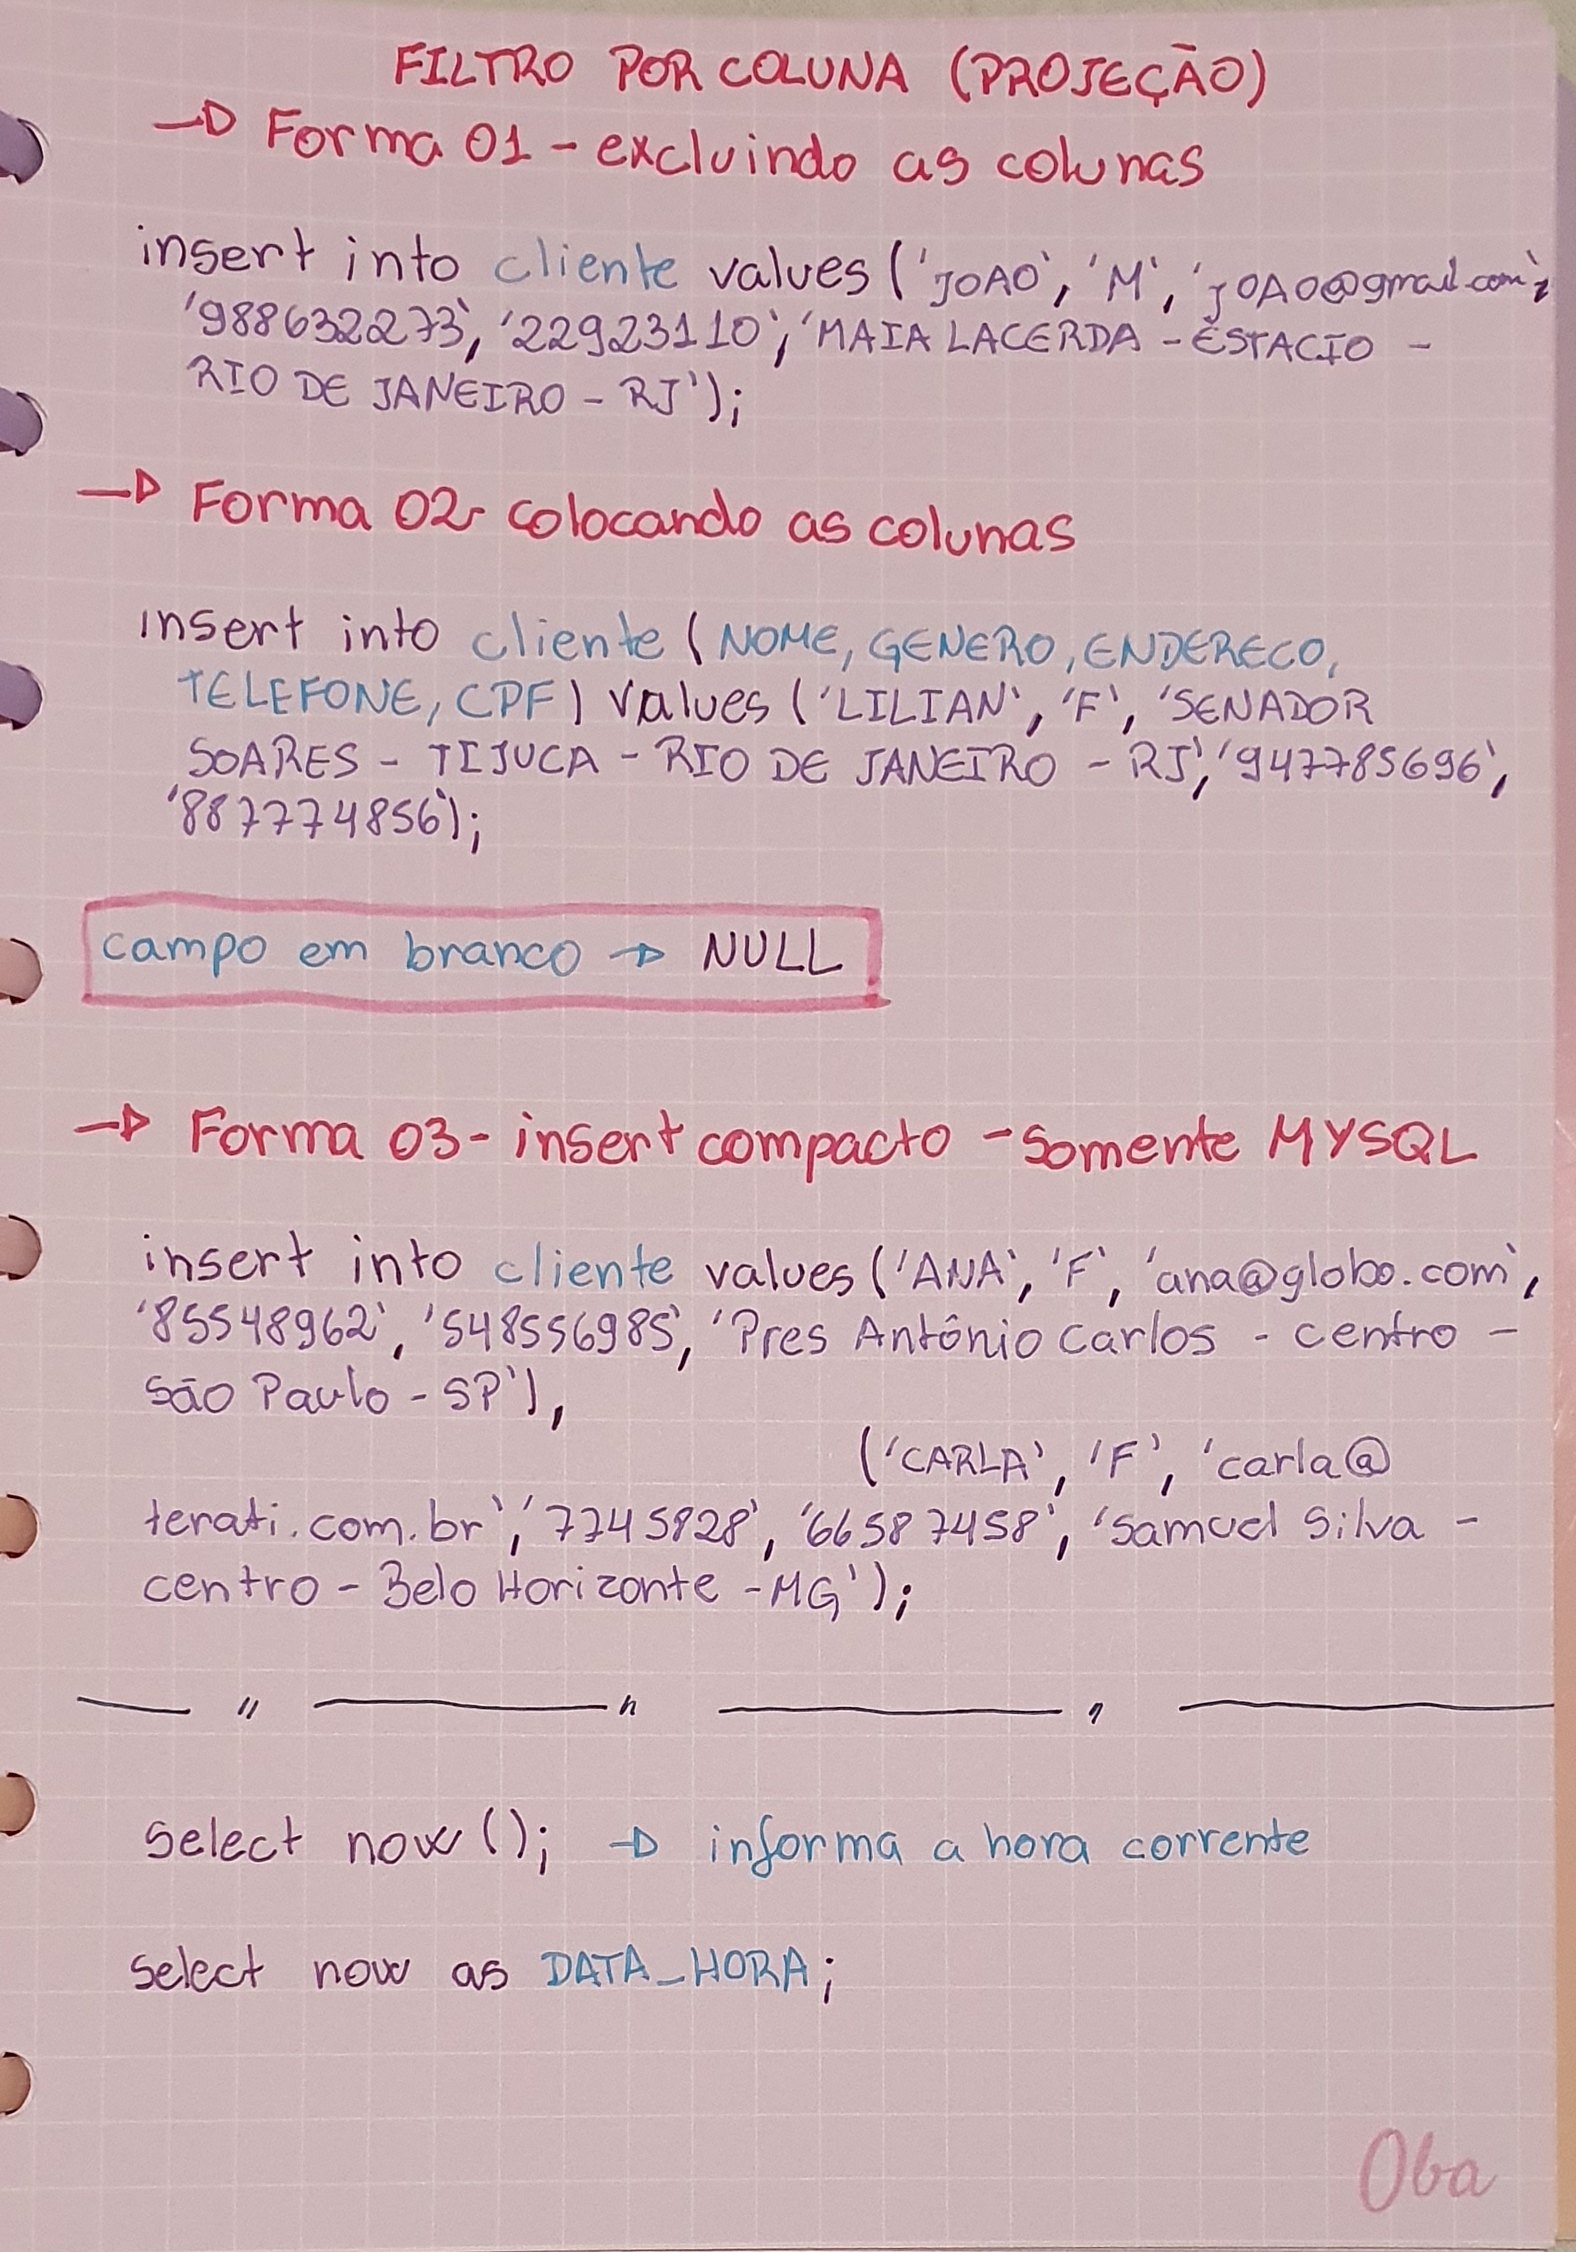 FILTRO POR COLUNA (PROJEÇÃO)
→ Forma 01 - excluindo as colunas
insert into cliente values ('JOAO', 'M', 'JOAO@gmail.com',
'988632273', '22923110', 'MAIA LACERDA - ESTACIO -
RIO DE JANEIRO - RJ');
→ Forma 02 - colocando as colunas
insert into cliente (NOME, GENERO, ENDERECO,
TELEFONE, CPF) values ('LILIAN', 'F', 'SENADOR
SOARES - TIJUCA - RIO DE JANEIRO - RJ', '947785696',
'887774856');
campo em branco → NULL
→ Forma 03 - insert compacto - somente MYSQL
insert into cliente values ('ANA', 'F', 'ana@globo.com',
'85548962', '548556985', 'Pres Antônio Carlos - centro -
são Paulo - SP'),
('CARLA', 'F', 'carla@
terati.com.br', '7745828', '66587458', 'Samuel Silva -
centro - Belo Horizonte - MG');
select now(); → informa a hora corrente
select now as DATA_HORA;
Oba